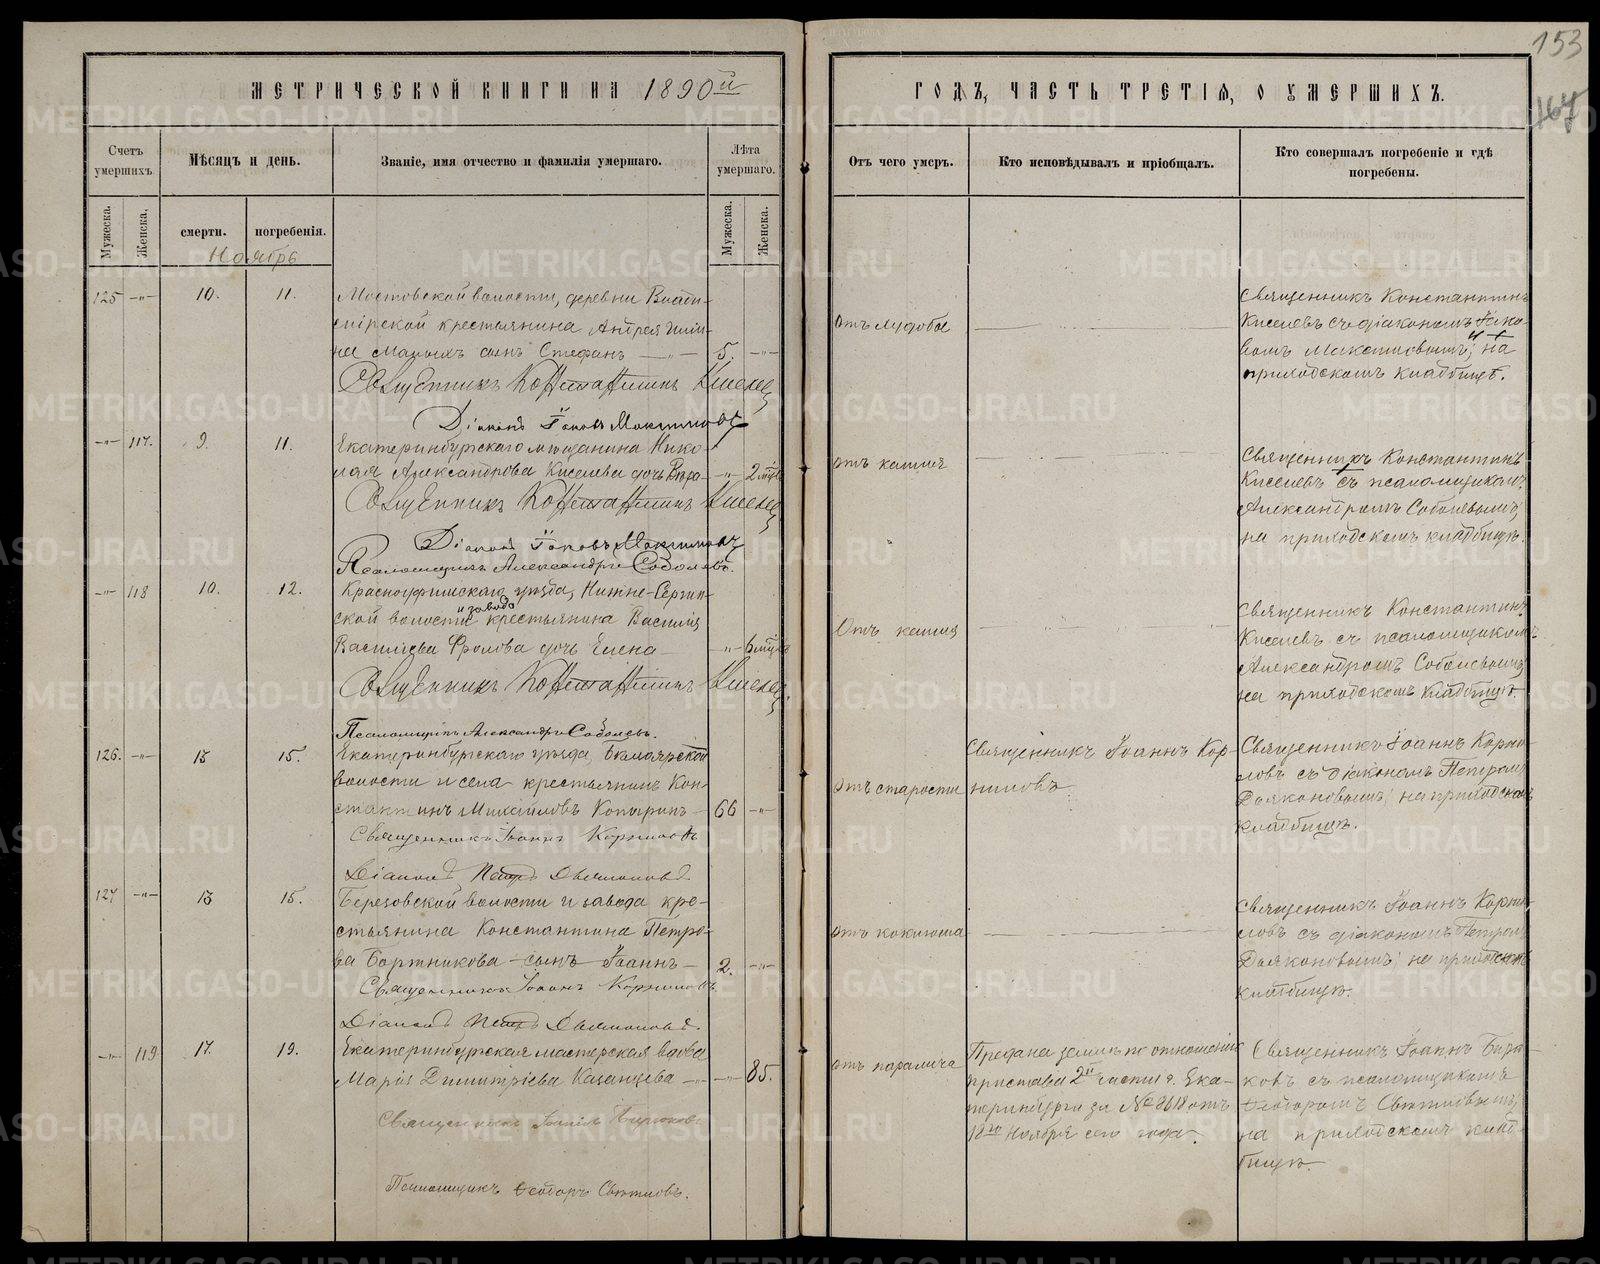 153
167
МЕТРИЧЕСКОЙ КНИГИ НА 1890й
ГОДЪ, ЧАСТЬ ТРЕТІЯ, О УМЕРШИХЪ.
Счетъ умершихъ.
Мѣсяцъ и день.
Званіе, имя отчество и фамилія умершаго.
Лѣта умершаго.
Отъ чего умеръ.
Кто исповѣдывалъ и пріобщалъ.
Кто совершалъ погребеніе и гдѣ погребены.
Мужеска.
Женска.
смерти.
погребенія.
Мужеска.
Женска.
Ноябрь
125 —"— 10. 11.
Мостовской волости, деревни
крестьянина Андрея
сынъ Стефанъ —"— 5. —"—
Священникъ Константинъ Киселевъ
Діаконъ Іаковъ Максимовъ
отъ
Священникъ Константинъ
Киселевъ съ діакономъ Іако-
вомъ Максимовымъ, на
приходскомъ кладбищѣ.
—"— 117. 9. 11.
Екатеринбургскаго мѣщанина Нико-
лая Александрова Киселева дочь Вѣра —"— 2 мѣс
Священникъ Константинъ Киселевъ
Діаконъ Іаковъ Максимовъ
Псаломщикъ Александръ Соболевъ.
отъ кашля
Священникъ Константинъ
Киселевъ съ псаломщикомъ
Александромъ Соболевымъ,
на приходскомъ кладбищѣ.
—"— 118 10. 12.
Красноуфимскаго уѣзда, Нижне-Сергин-
ской волости и завода крестьянина Василія
Васильева Фролова дочь Елена — —"— 6 мѣс
Священникъ Константинъ Киселевъ
Псаломщикъ Александръ Соболевъ.
Отъ кашля
Священникъ Константинъ
Киселевъ съ псаломщикомъ
Александромъ Соболевымъ,
на приходскомъ кладбищѣ.
126. —"— 13 15.
Екатеринбургскаго уѣзда,
волости и села крестьянинъ Кон-
стантинъ Михайловъ Копыринъ — 66 —"—
Священникъ Іоаннъ Корниловъ
Діаконъ Петръ Дьяконовъ
отъ старости
Священникъ Іоаннъ Кор-
ниловъ
Священникъ Іоаннъ Корни-
ловъ съ діакономъ Петромъ
Дьяконовымъ, на приходскомъ
кладбищѣ.
127 —"— 13 15.
Березовской волости и завода кре-
стьянина Константина Петро-
ва Бортникова сынъ Іоаннъ — 2. —"—
Священникъ Іоаннъ Корниловъ
Діаконъ Петръ Дьяконовъ.
отъ коклюша
Священникъ Іоаннъ Корни-
ловъ съ діакономъ Петромъ
Дьяконовымъ, на приходскомъ
кладбищѣ.
—"— 119 17. 19.
Екатеринбургская мастерская вдова
Марія Димитріева Казанцева —"— —"— 85.
Священникъ Іоаннъ Бирюковъ
Псаломщикъ Ѳеодоръ Свѣтловъ.
отъ паралича
Предана землѣ по отношенію
пристава 2й части г. Ека-
теринбурга за № 8618 отъ
18го Ноября сего года.
Священникъ Іоаннъ Бирю-
ковъ съ псаломщикомъ
Ѳеодоромъ Свѣтловымъ,
на приходскомъ клад-
бищѣ.
METRIKI.GASO-URAL.RU